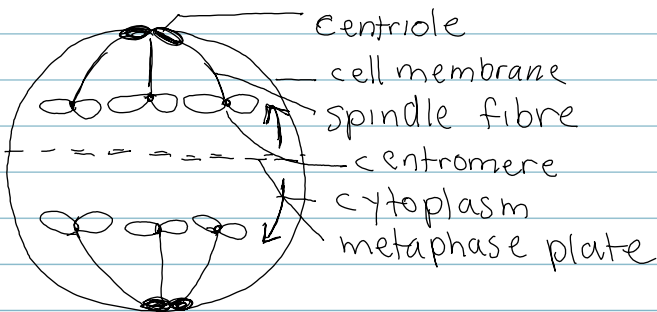 centriole
cell membrane
spindle fibre
centromere
cytoplasm
metaphase plate